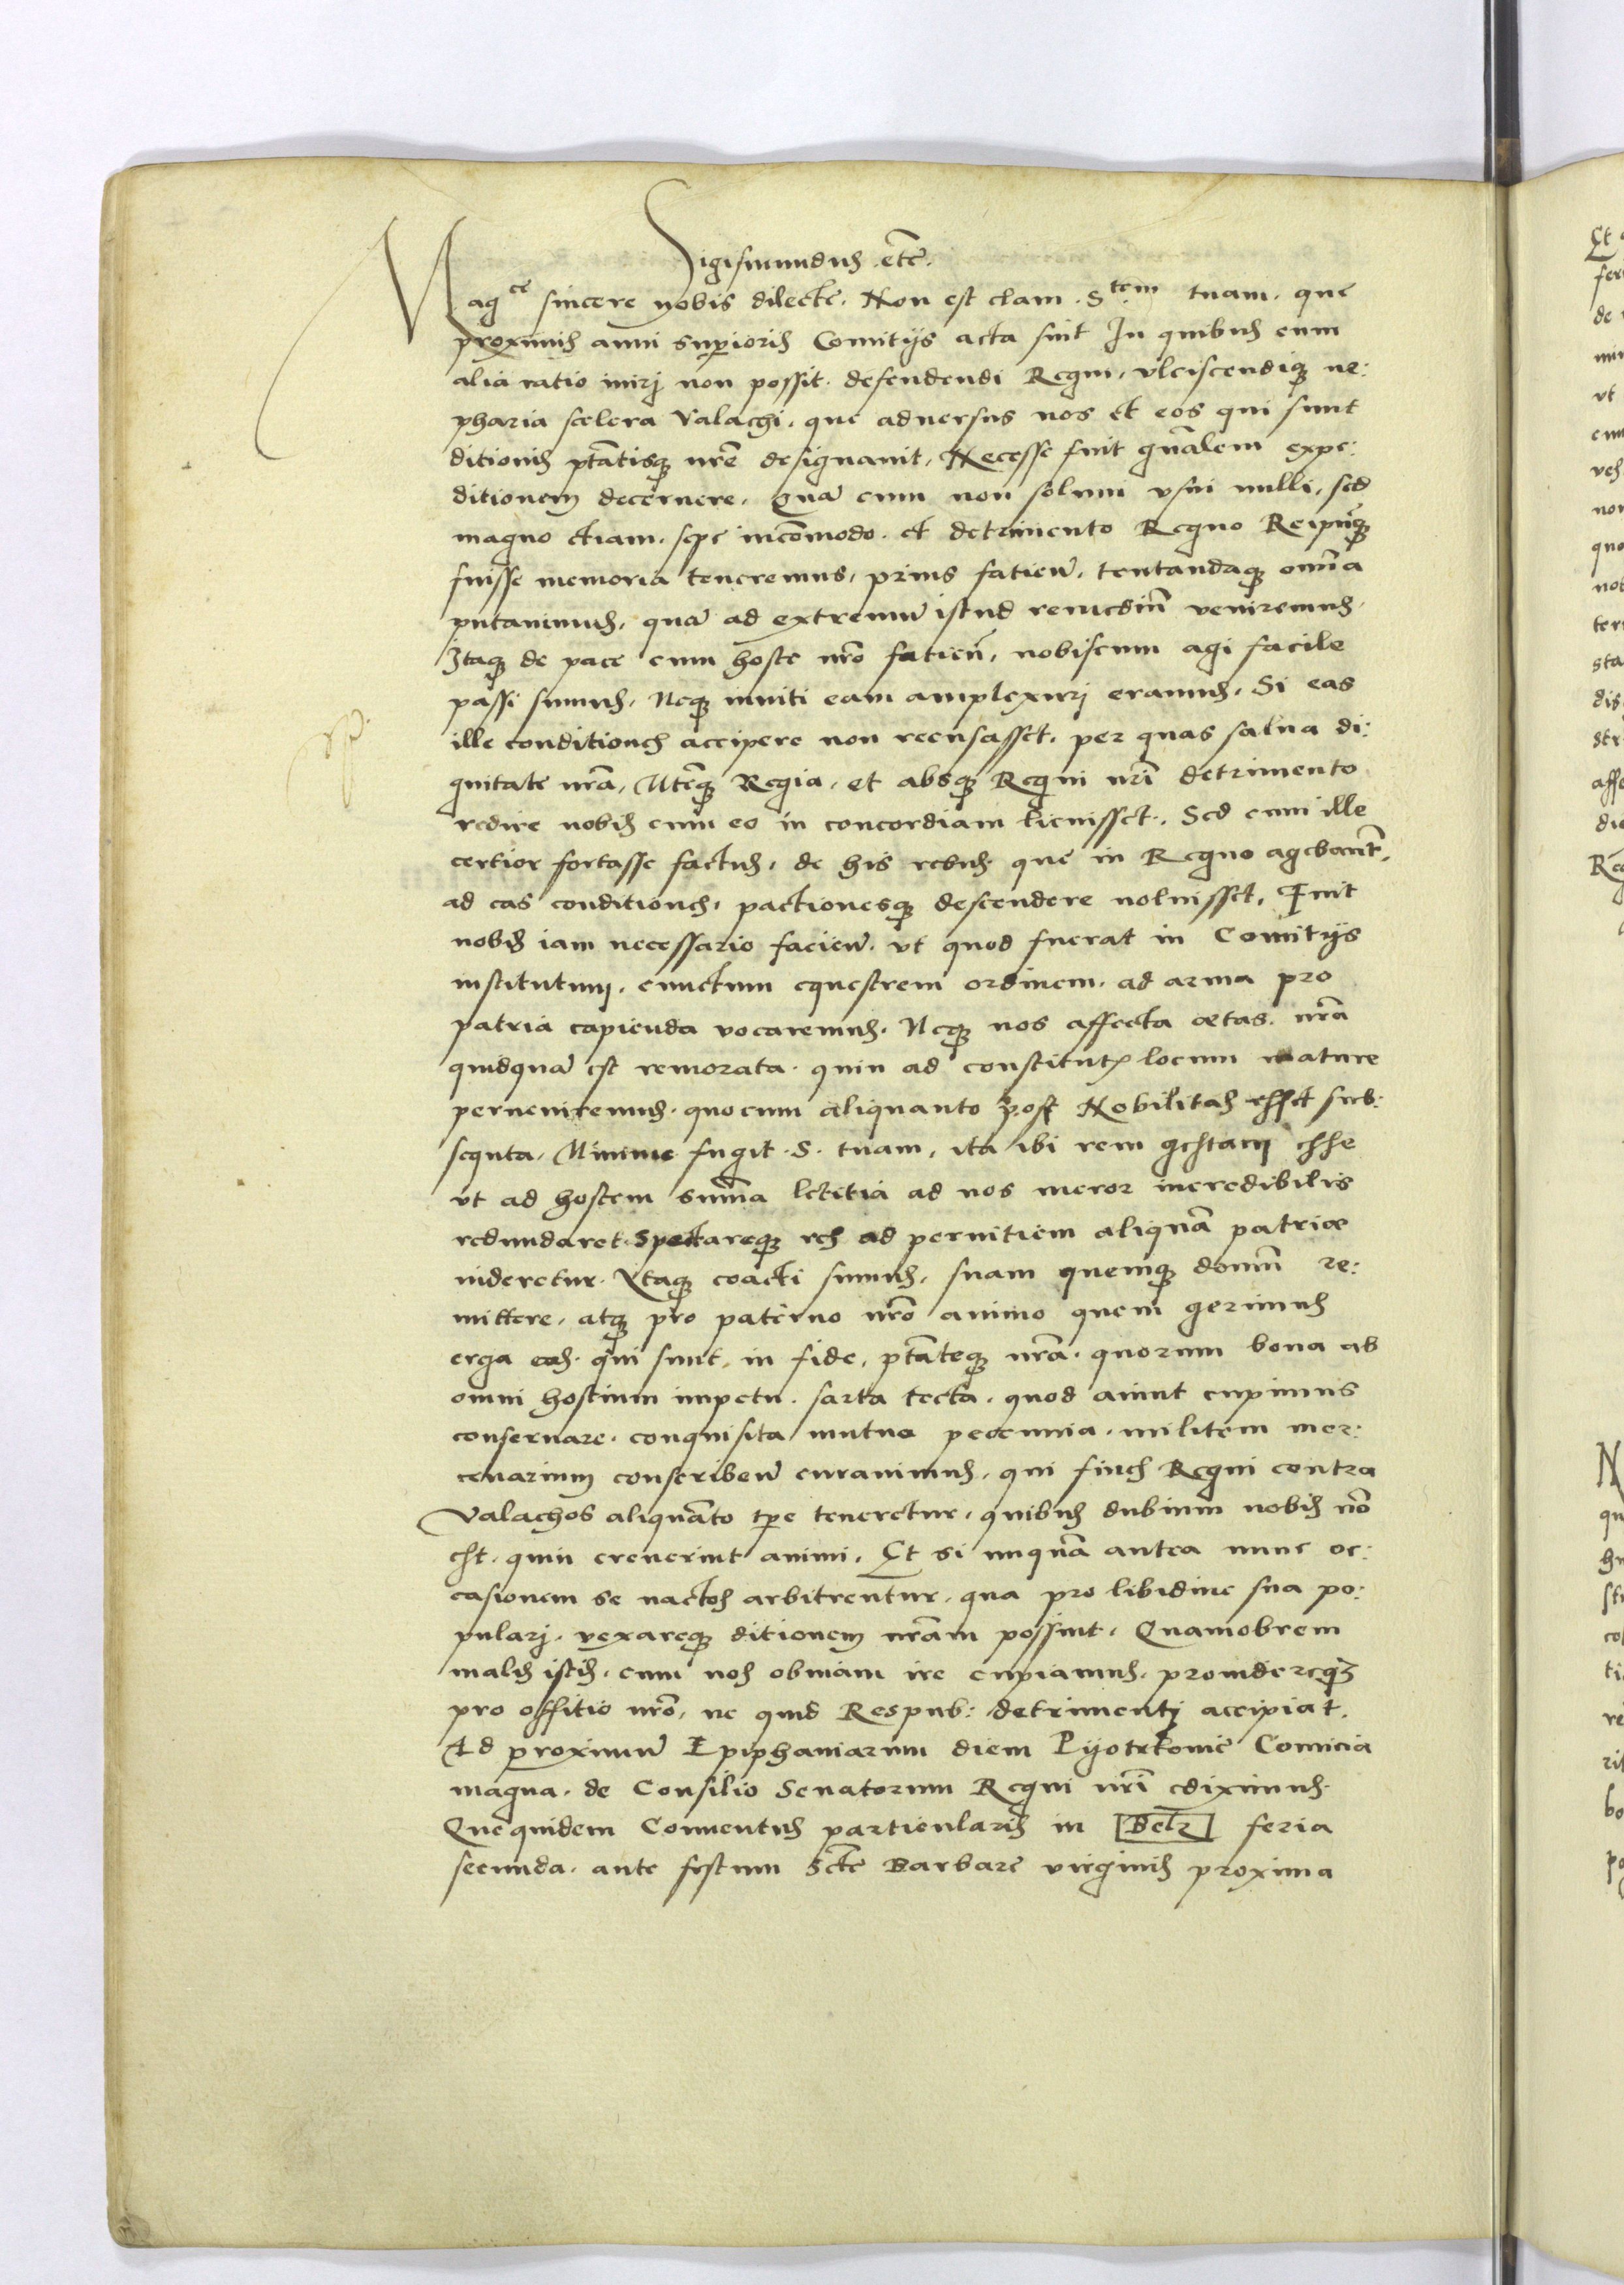 Sigismundus etc̃.
Magce sincere nobis dilecte. Non est clam. Stem tuam. que
proximis anni supioris Comitijs acta sint In quibus cum
alia ratio inirj non possit. defendendi Regni, vlciscendiq; ne:
pharia scelera Valachi, que aduersus nos et eos qui sunt
ditionis ptãtisq; nrẽ designauit, Necesse fuit gnãlem expe:
ditionem decernere. quã cum non solum vsui nulli, sed
magno etiam. sepe incõmodo. et detrimento Regno Reipuq;
fuisse memoria teneremus, prius fatien̄. tentandaq; omñia
putauimus, quã ad extremum̃ istud remediũ ueniremus.
Itaq; de pace cum hoste nrõ fatien̄, nobiscum agi facile
passi sumus, Neq; inuiti eam amplexurj eramus, Si eas
ille conditiones accipere non recusasset. per quas salua di:
gnitate nrã, Mteq; Regia, et absq; Regni nrĩ detrimento
redire nobis cum eo in concordiam licuisset. Sed cum ille
certior fortasse factus, de his rebus que in Regno agebant̃,
ad eas conditiones, pactionesq; descendere noluisset, Fuit
nobis iam necessario facien̄. vt quod fuerat in Comitijs
institutum, cunctum equestrem ordinem. ad arma pro
patria capienda vocaremus. Neq; nos affecta aetas. nrã
quidquã est remorata. quin ad constitutũ locum mature
perueniremus. quocum aliquanto post Nobilitas esset sub:
sequta, Minime fugit. S. tuam, ita ibi rem gestam esse
vt ad hostem sum̃a letitia ad nos meror incredibilis
redundaret. Spectareq; res ad pernitiem aliquã patriae
uideretur. Itaq; coacti sumus, suam quemq; domũ re:
mittere, atq; pro paterno nrõ animo quem gerimus
erga eos. qui sunt, in fide, ptãteq; nrã. quorum bona ab
omni hostium impetu. sarta tecta. quod aiunt cupimus
conseruare. conquisita mutua pecunia. militem mer:
cenarium conscriben̄ curauimus, qui fines Regni contra
Valachos aliquãto tpe teneretur, quibus dubium nobis nõ
est. quin creuerint animi, Et si unquã antea nunc oc:
casionem se nactos arbitrentur, qua pro libidine sua po:
pularj. vexareq; ditionem nrãm possint, Quamobrem
malis istis, cum nos obuiam ire cupiamus. prouidereq;
pro offitio nrõ, ne quid Respub: detrimentj accipiat.
Ad proximum̃ Epiphaniarum diem Pyotrkouie Comicia
magna. de Consilio Senatorum Regni nrĩ ediximus.
Que quidem Conuentus particularis in [Belz] feria
secunda. ante festum Sctẽ Barbare virginis proxima